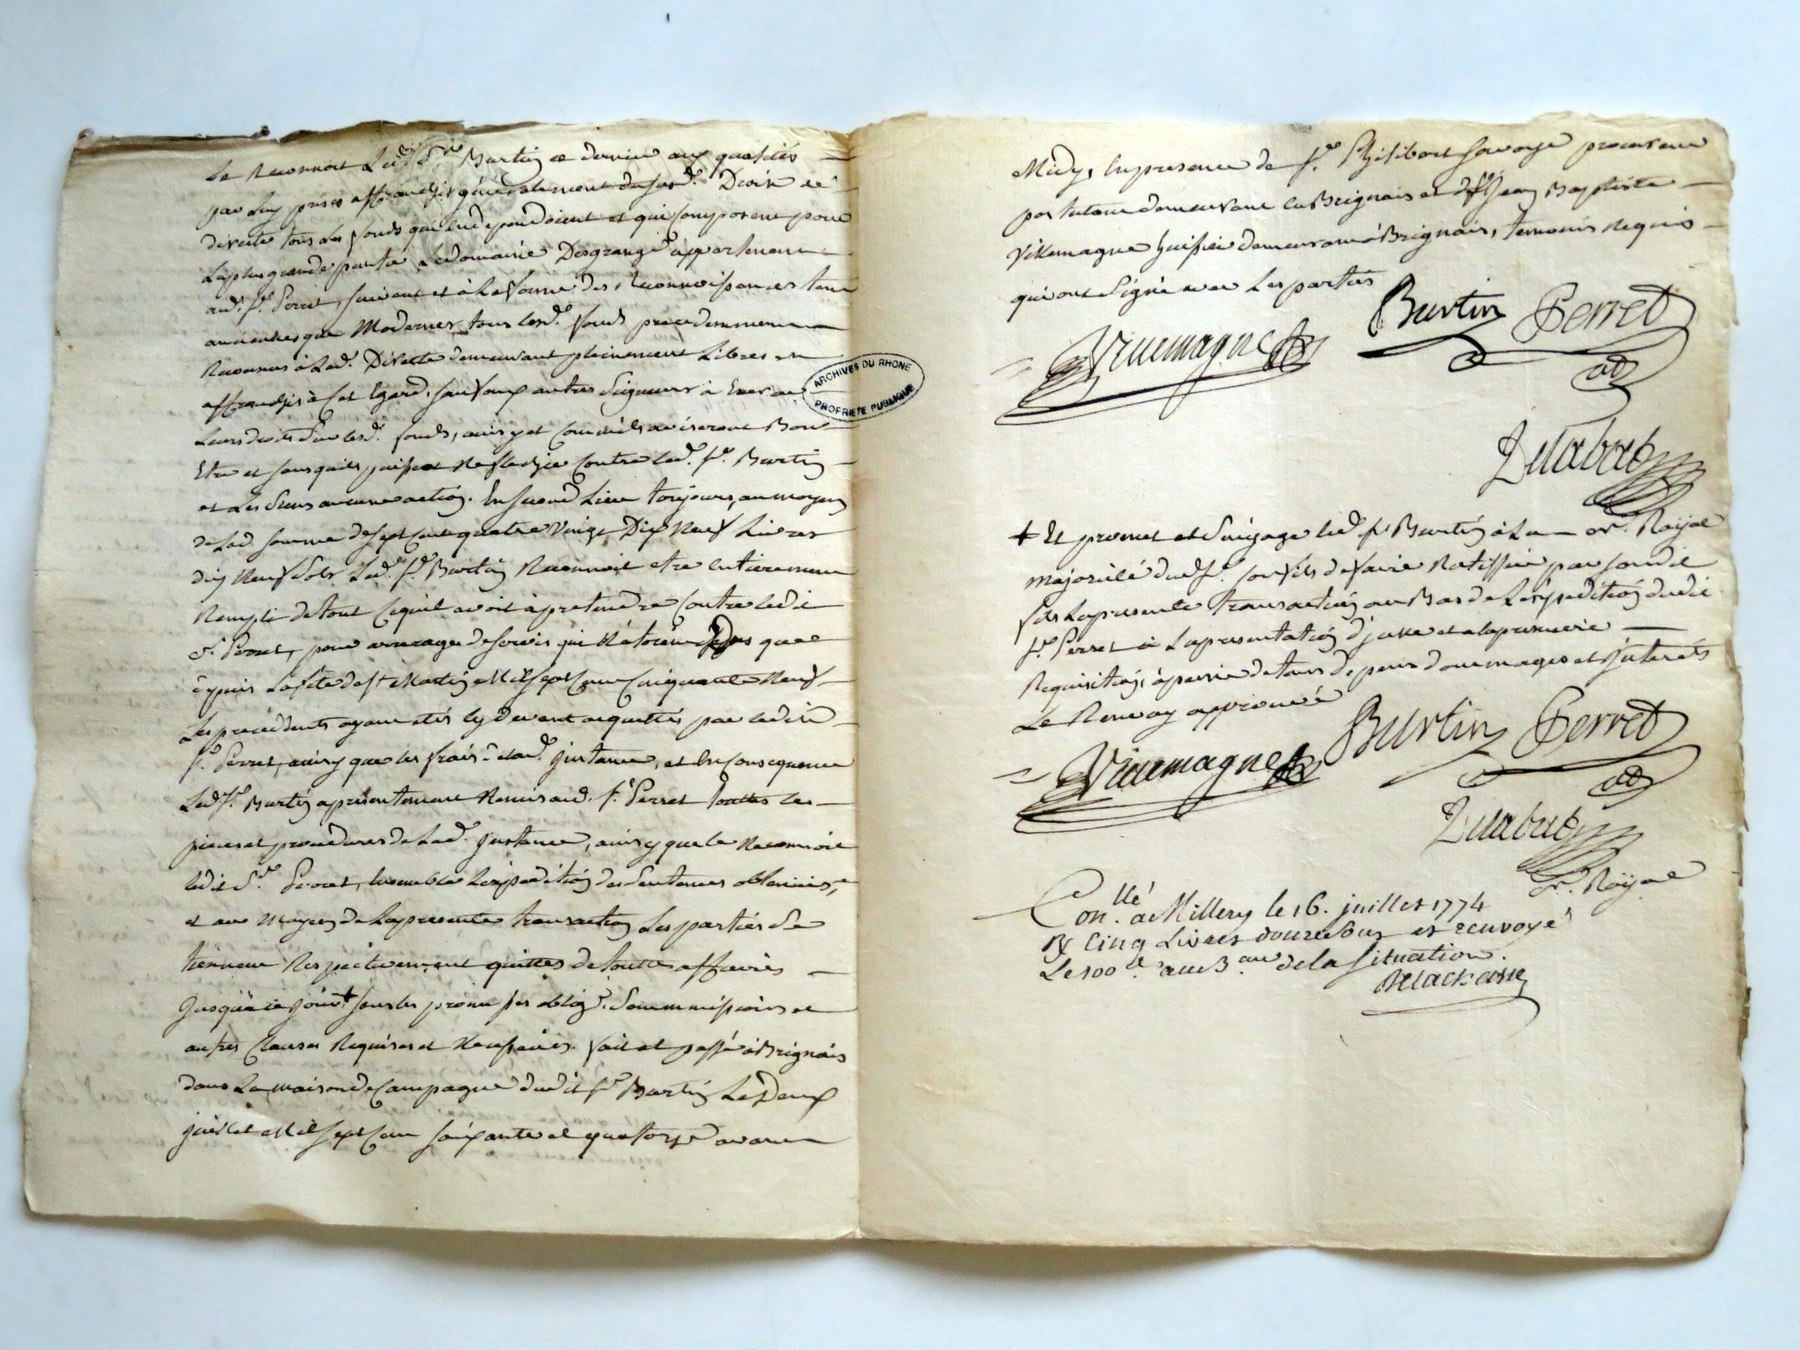 Le Reconnoit Led. Sr. Burtin ce dernier aux qualités
par luy prises affranchit généralement de sad. Directe
directe tous les fonds qui en dependoient et qui composent pour
La plus grande partie Le domaine Desgranges appartenant
aud. Sr. Perret, suivant et à La forme des Reconnoissances tant
anciennes que Modernes, tous lesd. fonds precedemment
Reconnus à Lad. Directe demeurant pleinement Libres et
affranchis à cet Egard, sauf aux autres Seigneurs à Exercer
Leurs droits sur lesd. fonds, ainsy et comm'ils aviseront Bon
Etre et sans qu'ils puissent Reflechir contre led. Sr. Burtin
et Les Siens aucune action. En second Lieu toujours, au moyen
de Lad. somme de sept cent quatre Vingt Dix Neuf Livres
dix Neuf sols Led. Sr. Burtin Reconnoit etre entierement
Rempli de tout ce qu'il avoit à pretendre contre ledit
Sr. Perret, pour arrerages de servis qui N'étoient dus que
depuis La fete de St. Martin Mil sept cent cinquante Neuf
Les precedents ayant etés cy devant acquittés par ledit
Sr. Perret, ainsy que les frais de lad. Instance, et En consequence
Led. Sr. Burtin a presentement Remis aud. Sr. Perret touttes les
pieces et procedures de Lad. Instance, ainsy que le Reconnoit
ledit Sr. Perret, ensemble L'expedition des Sentences obtenües,
et au Moyen de La presente transaction Les parties se
tiennent Respectivement quittes de toutes affaires
Jusqu'à ce jour + sous les promesses oblig. Soummissions et
autres Clauses Requises et Necessaires. fait et passé à Brignais
dans La maison de Campagne dudit Sr. Burtin Le Deux
juillet Mil sept cent soixante et quatorze avant
Midy, En presence de Sr. Philibert Savoye procureur
postulant demeurant à Brignais et de Sr. Jean Baptiste
Villemagne huissier demeurant à Brignais, temoins Requis
qui ont Signé avec Les parties
Burtin Perret
Villemagne
+ Et promet et s'engage led. Sr. Burtin à La
majorité dud. Sr. son fils de faire Ratiffier par sondit
fils La presente transaction au Bas de L'expedition dudit
Sr. Perret à La presentation d'icelle et a la premiere
Requisition, à peine de tous depens dommages et Interets
Le Renvoy approuvé
Burtin Perret
Villemagne
Nr. Royal
Con.llé a Millery le 16. juillet 1774
R cinq Livres douze sous et renvoyé
Le 100e. au B.au de la situation.